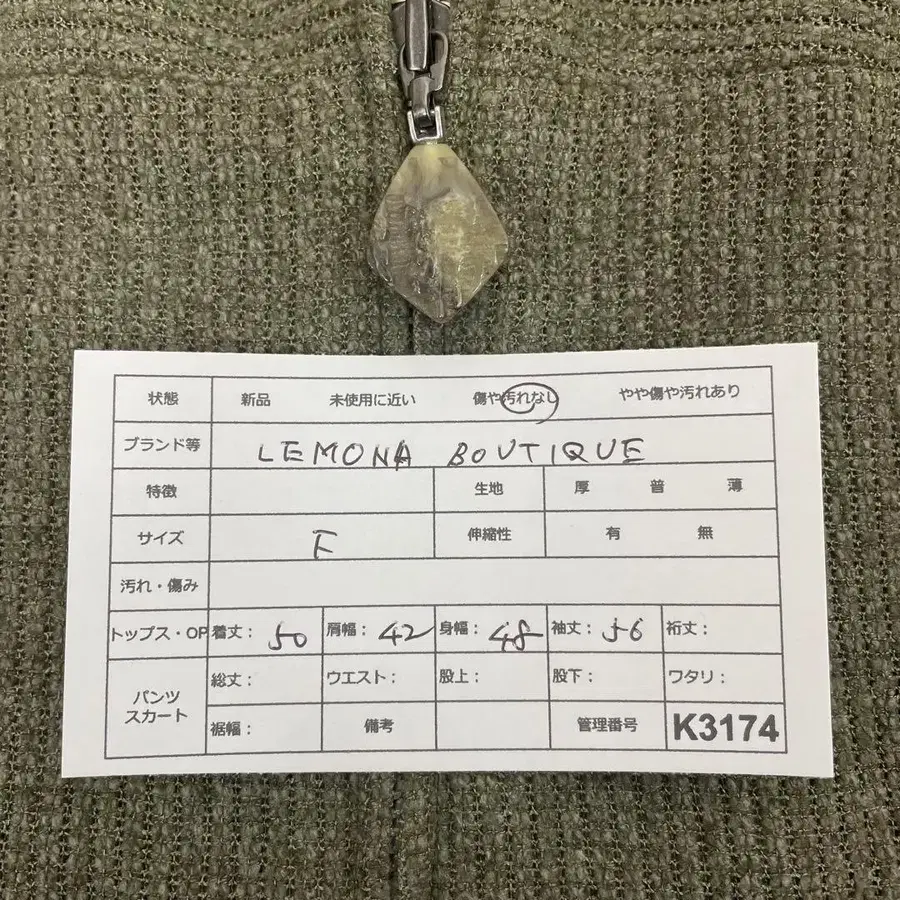 状態 新品 未使用に近い 傷や汚れなし やや傷や汚れあり
ブランド等 LEMONA BOUTIQUE
特徴 生地 厚 普 薄
サイズ F 伸縮性 有 無
汚れ・傷み
トップス・OP 着丈: 50 肩幅: 42 身幅: 48 袖丈: 56 裄丈:
パンツ スカート 総丈: ウエスト: 股上: 股下: ワタリ:
裾幅: 備考 管理番号 K3174